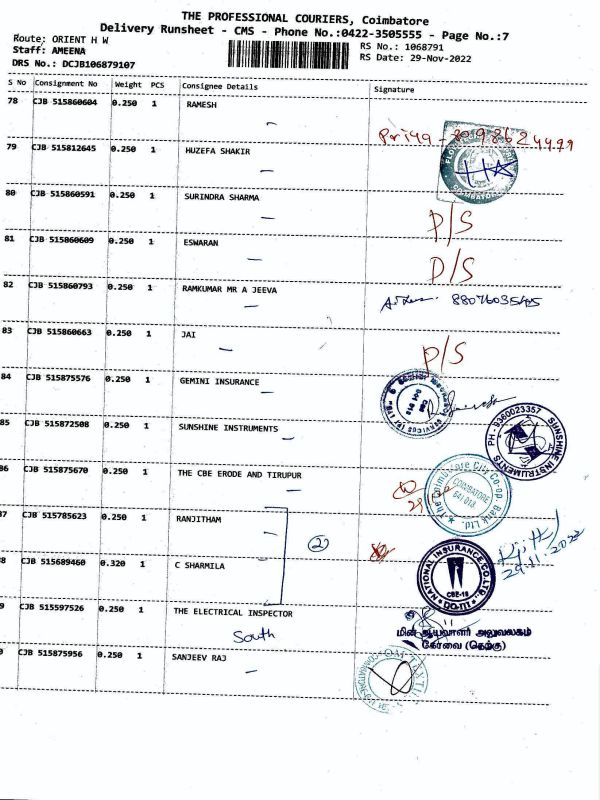 THE PROFESSIONAL COURIERS, Coimbatore
Delivery Runsheet - CMS - Phone No.:0422-3505555 - Page No.:7
Route: ORIENT H W
Staff: AMEENA
DRS No.: DCJB106879107
RS No.: 1068791
RS Date: 29-Nov-2022
S No Consignment No Weight PCS Consignee Details Signature
78 CJB 515860604 0.250 1 RAMESH
79 CJB 515812645 0.250 1 HUZEFA SHAKIR
80 CJB 515860591 0.250 1 SURINDRA SHARMA
D/S
81 CJB 515860609 0.250 1 ESWARAN
D/S
82 CJB 515860793 0.250 1 RAMKUMAR MR A JEEVA
83 CJB 515860663 0.250 1 JAI
D/S
84 CJB 515875576 0.250 1 GEMINI INSURANCE
85 CJB 515872508 0.250 1 SUNSHINE INSTRUMENTS
PH - 9360023357 SUNSHINE INSTRUMENTS
86 CJB 515875670 0.250 1 THE CBE ERODE AND TIRUPUR
The Coimbatore City Co-op. Bank Ltd.
COIMBATORE
641 018
87 CJB 515785623 0.250 1 RANJITHAM
2
88 CJB 515689460 0.320 1 C SHARMILA
NATIONAL INSURANCE CO. LTD.
CBE-18
29.11.2022
89 CJB 515597526 0.250 1 THE ELECTRICAL INSPECTOR
South
மின் ஆய்வாளர் அலுவலகம்
கோவை (தெற்கு)
CJB 515875956 0.250 1 SANJEEV RAJ